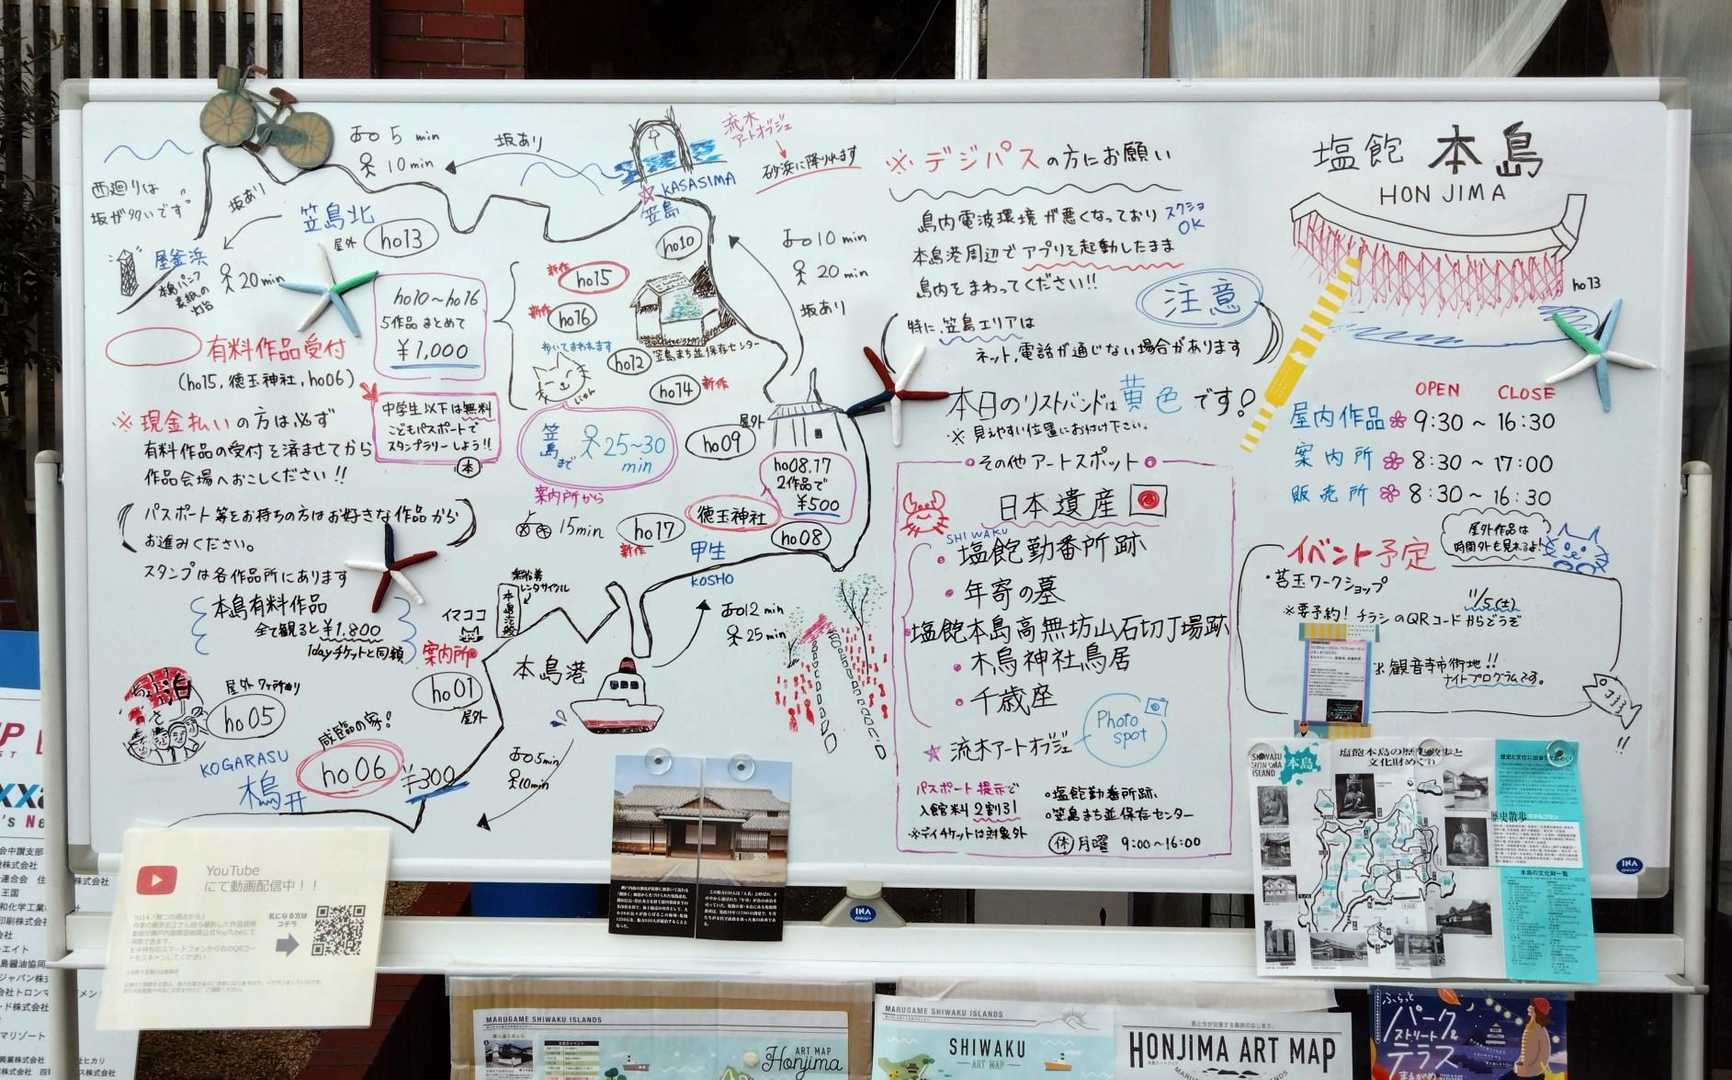 5 min
10 min
坂あり
流木
アートオブジェ
砂浜に降りれます
西廻りは
坂が多いです
坂あり
笠島北
屋外
ho13
KASASIMA
笠島
ho10
屋釜浜
本島パンフ
表紙の
灯台
20 min
10 min
20 min
坂あり
ho10〜ho16
5作品まとめて
¥1,000
新作
ho15
新作
ho16
歩いてまわれます
ho12
笠島まち並保存センター
ho14
新作
有料作品受付
(ho15, 徳玉神社, ho06)
中学生以下は無料
こどもパスポートで
スタンプラリーしよう!!
本
※現金払いの方は必ず
有料作品の受付を済ませてから
作品会場へおこしください!!
笠島まで
25~30
min
ho09
屋外
ho08.17
2作品で
¥500
案内所から
15min
ho17
新作
徳玉神社
ho08
甲生
KOSHO
パスポート等をお持ちの方はお好きな作品から
お進みください。
スタンプは各作品所にあります
本島有料作品
全て観ると¥1,800
1dayチケットと同額
レンタサイクル
本島汽船
イマココ
案内所
ho01
屋外
本島港
12 min
25 min
屋外7ヶ所あり
ho05
咸臨の家!
ho06
¥300
KOGARASU
5min
10min
※デジパスの方にお願い
島内電波環境が悪くなっており
スクショ
OK
本島港周辺でアプリを起動したまま
島内をまわってください!!
注意
特に、笠島エリアは
ネット、電話が通じない場合があります
本日のリストバンドは黄色です?
※見えやすい位置にお付け下さい。
その他アートスポット
日本遺産
SHIWAKU
・塩飽勤番所跡
・年寄の墓
・塩飽本島高無坊山石切丁場跡
・木烏神社鳥居
・千歳座
流木アートオブジェ
Photo
spot
パスポート提示で
入館料2割引
※デイチケットは対象外
○塩飽勤番所跡
○笠島まち並保存センター
休 月曜 9:00〜16:00
塩飽 本島
HONJIMA
ho13
OPEN CLOSE
屋内作品 9:30 ~ 16:30
案内所 8:30 ~ 17:00
販売所 8:30 ~ 16:30
屋外作品は
時間外も見れるよ!
イベント予定
・苔玉ワークショップ
11/5(土)
※要予約! チラシのQRコードからどうぞ
※観音寺市街地!!
ナイトプログラムです。
SHIWAKU
HONJIMA
ISLAND
本島
塩飽本島の歴史散歩と
文化財めぐり
歴史散歩
本島の文化財一覧
INA
INA
YouTube
にて動画配信中!!
気になる方は
コチラ
MARUGAME SHIWAKU ISLANDS
ART MAP
Honjima
MARUGAME SHIWAKU ISLANDS
SHIWAKU
ART MAP
HONJIMA ART MAP
MARUGAME SHIWAKU ISLANDS
ふらっと
パーク&
ストリート
テラス